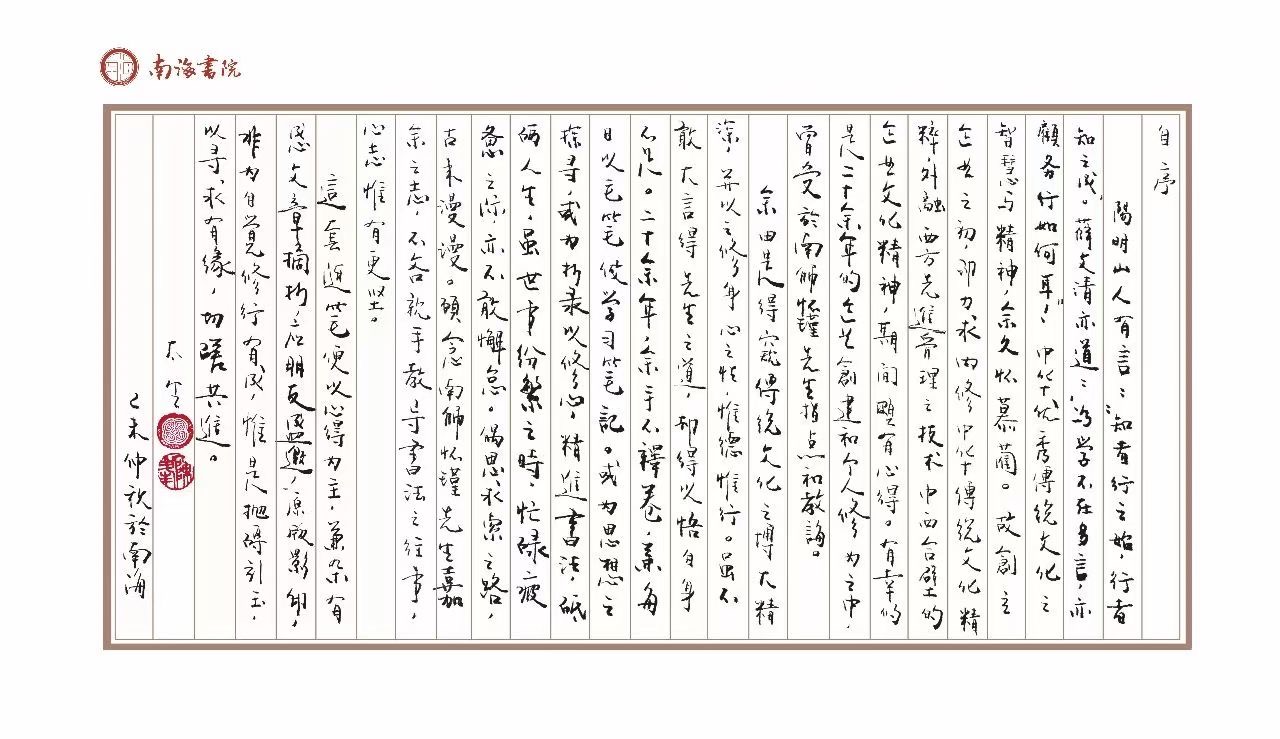 南海書院
自序
陽明山人有言：“知者行之始，行者
知之成。”薛文清亦道：“為学不在多言，亦
顧务行如何耳！”中华优秀傳统文化之
智慧与精神，余久怀慕藺。故創立
企业之初，即力求内修中华傳统文化精
粹，外融西方先進管理之技术中西合壁的
企业文化精神，期间頗有心得。有幸的
是二十余年的企业創建和个人修为之中，
曾受於南師怀瑾先生指点和教誨。
余由是得窥傳统文化之博大精
深，并以之修身心之性，惟德惟行。虽不
敢大言得先生之道，却得以悟自身
不足。二十余年，余手不釋卷，兼每
日以毛笔使学习笔記。或为思想之
探寻，或为抄录以修心，精進書法，砥
砺人生，虽世事纷繁之時，忙碌疲
惫之际，亦不敢懈怠。偶思求索之路，
古来漫漫。顾念南師怀瑾先生嘉
余之志，不吝親手教导書法之往事，
心志惟有更坚。
這套随笔便以心得为主，兼杂有
感，文章摘抄，应朋友盛邀，原版影印，
非为自覚修行有成，惟是抛砖引玉，
以寻求有緣，切磋共進。
己未仲秋於南海